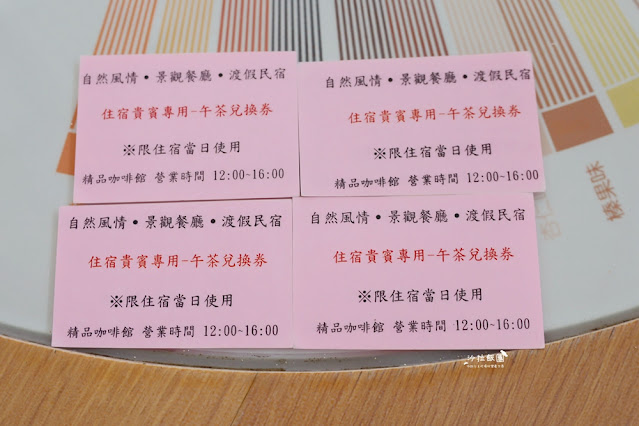 自然風情•景觀餐廳•渡假民宿
住宿貴賓專用-午茶兌換券
※限住宿當日使用
精品咖啡館 營業時間 12:00~16:00
自然風情•景觀餐廳•渡假民宿
住宿貴賓專用-午茶兌換券
※限住宿當日使用
精品咖啡館 營業時間 12:00~16:00
自然風情•景觀餐廳•渡假民宿
住宿貴賓專用-午茶兌換券
※限住宿當日使用
精品咖啡館 營業時間 12:00~16:00
自然風情•景觀餐廳•渡假民宿
住宿貴賓專用-午茶兌換券
※限住宿當日使用
精品咖啡館 營業時間 12:00~16:00
榛果味
沙拉飯團